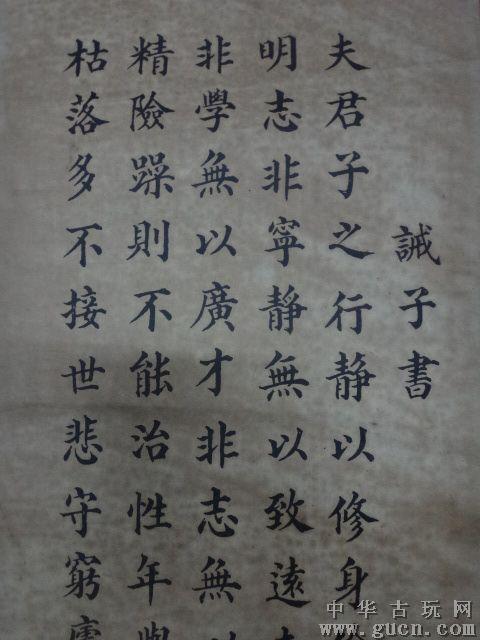 誡子書
夫君子之行静以修身
明志非寧静無以致遠
非學無以廣才非志無以
精險躁則不能治性年與
枯落多不接世悲守窮廬
中华古玩网
www.gucn.com